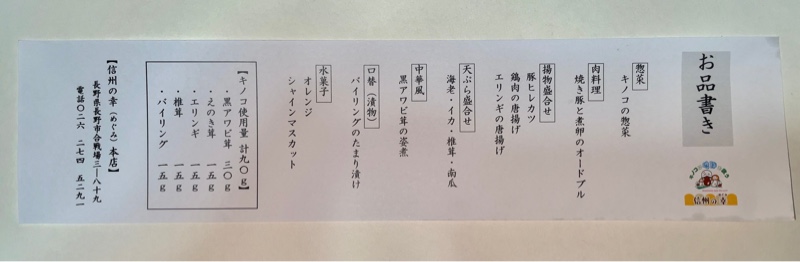 お品書き
信州の幸
惣菜
キノコの惣菜
肉料理
焼き豚と煮卵のオードブル
揚物盛合せ
豚ヒレカツ
鶏肉の唐揚げ
エリンギの唐揚げ
天ぷら盛合せ
海老・イカ・椎茸・南瓜
中華風
黒アワビ茸の姿煮
口替（漬物）
バイリングのたまり漬け
水菓子
オレンジ
シャインマスカット
【キノコ使用量 計九〇g】
・黒アワビ茸 三〇g
・えのき茸 一五g
・エリンギ 一五g
・椎茸 一五g
・バイリング 一五g
【信州の幸（めぐみ）本店】
長野県長野市合戦場三ー八十九
電話〇二六 二七四 五二九一